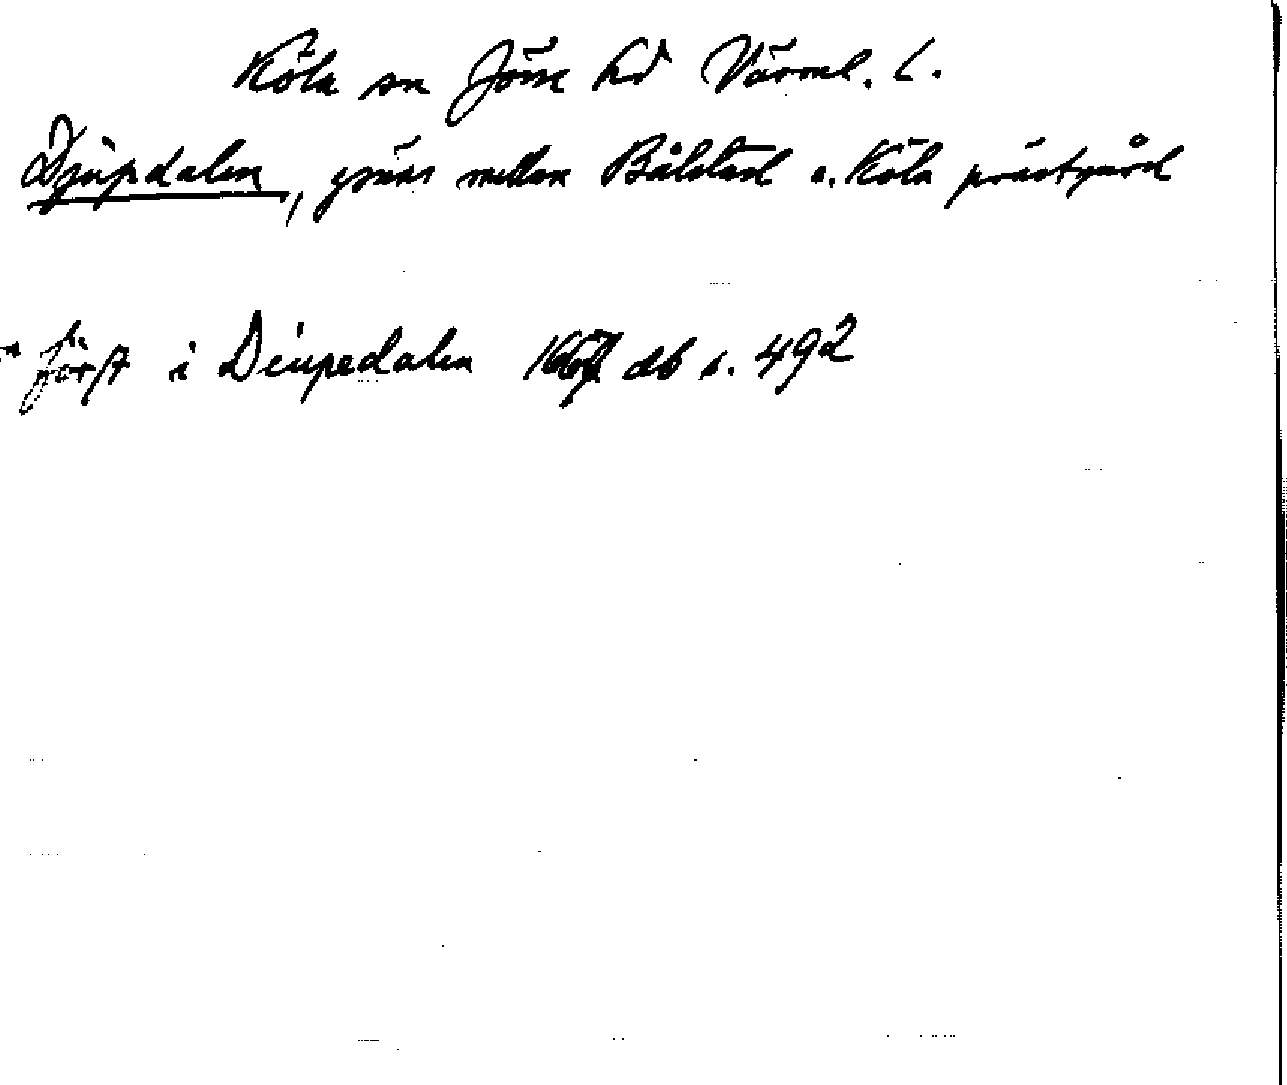 Köla sn Jösse hd Värml. L.
Djupdalen, gräns mellan Bålstad o. Köla prästgård
först i Diupedalen db s. 492